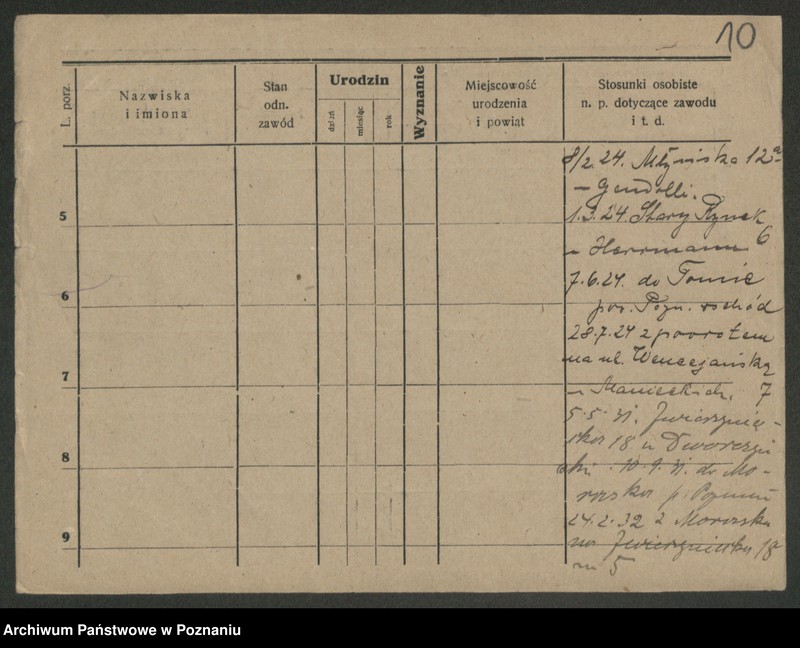 10
L. porz.
Nazwiska
i imiona
Stan
odn.
zawód
Urodzin
dzień
miesiąc
rok
Wyznanie
Miejscowość
urodzenia
i powiat
Stosunki osobiste
n. p. dotyczące zawodu
i t. d.
5
6
7
8
9
8/2.24. Młyńska 12a
1.3.24. Stary Rynek
u Herrmann 6
7.6.24. do
pow. Pozn. wschód
28.7.24 z powrotem
na ul. Wenecjańską
u 7
5.5.31. Zwierzyniec-
ka 18 u
10.9.31. do Mo-
rasko p.
24.2.32 z Moraska
na Zwierzyniecką 18
m 5
Archiwum Państwowe w Poznaniu